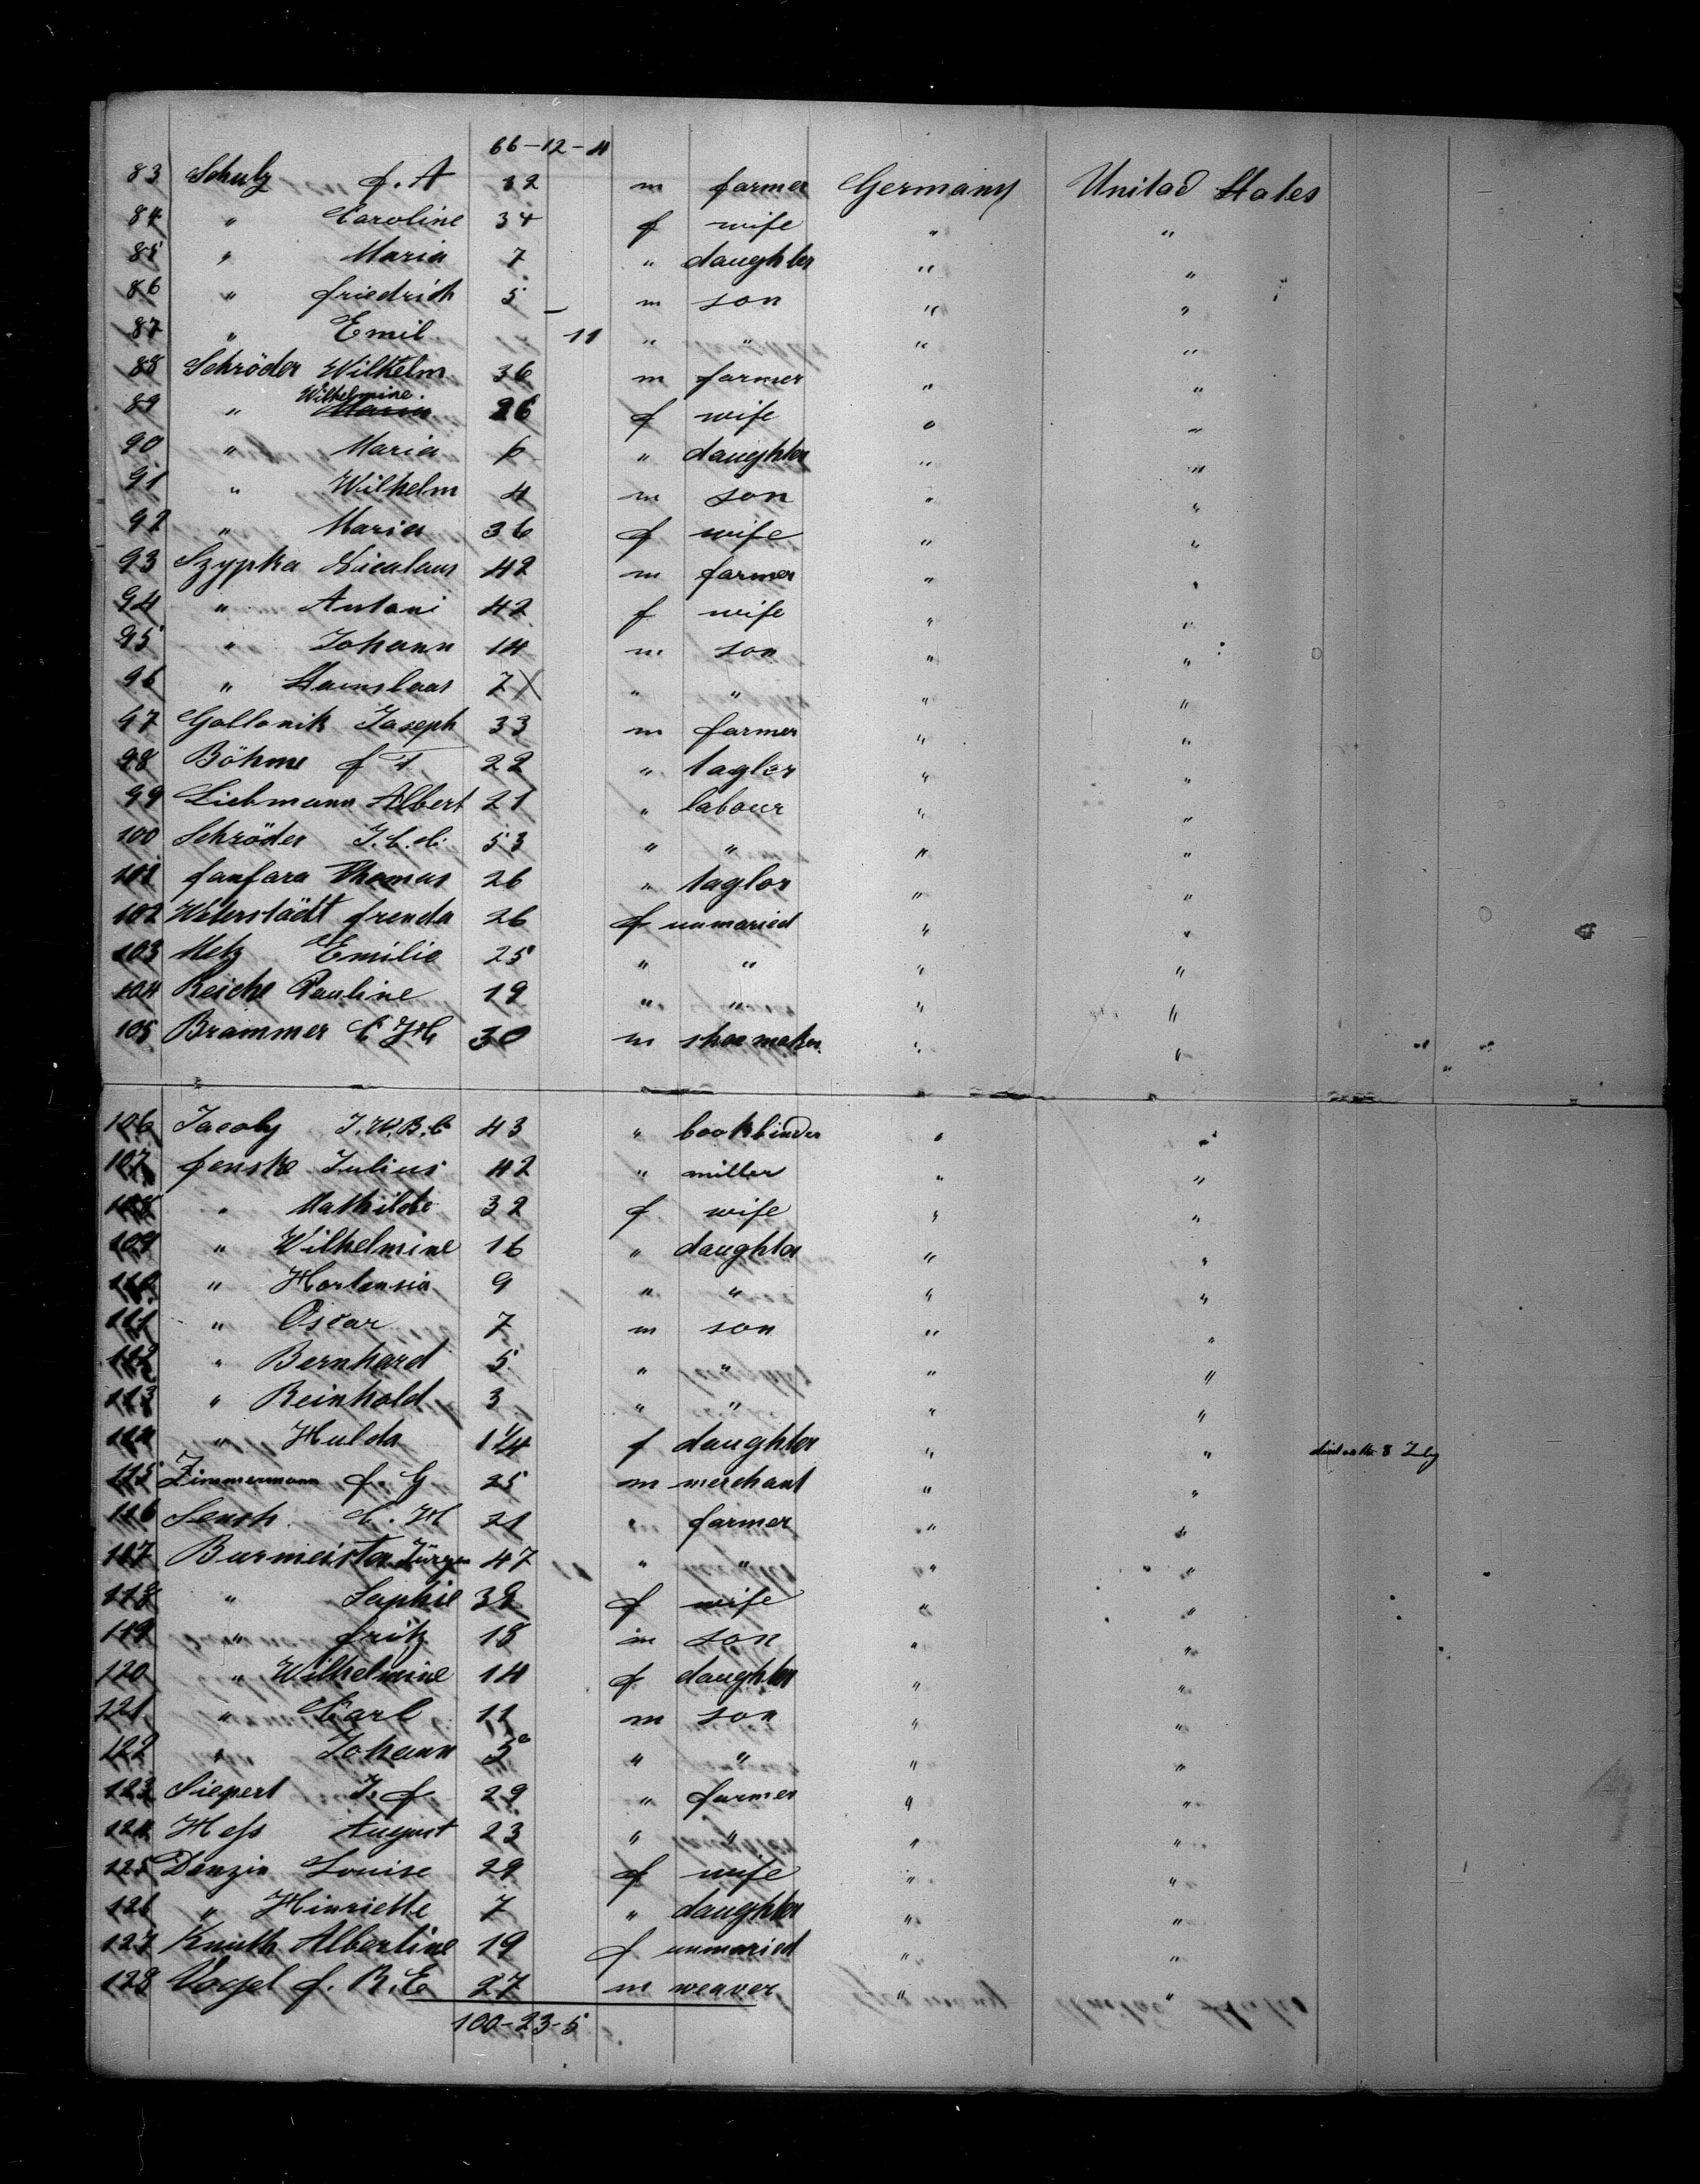 66-12-4
83 Schulz f. A 32 m farmer Germany Unitad States
84 " Caroline 34 f wife " "
85 " Maria 7 " daughter " "
86 " friedrich 5 m son " "
87 " Emil 11 " " " "
88 Schröder Wilhelm 36 m farmer " "
Wilhelmine.
89 " Maria 26 f wife " "
90 " Maria 6 " daughter " "
91 " Wilhelm 4 m son " "
92 " Maria 36 f wife " "
93 Szypka Nicalaus 42 m farmer " "
94 " Antoni 42 f wife " "
95 " Johann 14 m son " "
96 " 7 " " " "
97 Gollanik Joseph 33 m farmer " "
98 Böhme f 22 " taglor " "
99 Liebmann Albert 21 " labour " "
100 Schröder 53 " " " "
101 fanfara Thomas 26 " taglor " "
102 frenda 26 f unmaried " "
103 Metz Emilie 25 " " " "
104 Reiche Pauline 19 " " " "
105 Brammer C JH 30 m shoemaker " "
106 Jacoby J.W.B.C 43 " bookbinder " "
107 fenske Julius 42 " miller " "
108 " Mathilde 32 f wife " "
109 " Wilhelmine 16 " daughter " "
110 " Hortensia 9 " " " "
111 " Oscar 7 m son " "
112 " Bernhard 5 " " " "
113 " Reinhold 3 " " " "
114 " Hulda 1 1/4 f daughter " " 8 July
115 Zimmermann f. G 25 m merchant " "
116 H 21 " farmer " "
117 Burmeister Jürgen 47 " " " "
118 " Sophie 38 f wife " "
119 " fritz 18 m son " "
120 " Wilhelmine 14 f daughter " "
121 " Carl 11 m son " "
122 " Johann 5 " " " "
123 Siepert J. f 29 " farmer " "
124 Hess August 23 " " " "
125 Danzin Louise 29 f wife " "
126 " Hinriette 7 " daughter " "
127 Knuth Albertine 19 f unmaried " "
128 Vogel f. R. E 27 m weaver " "
100-23-5